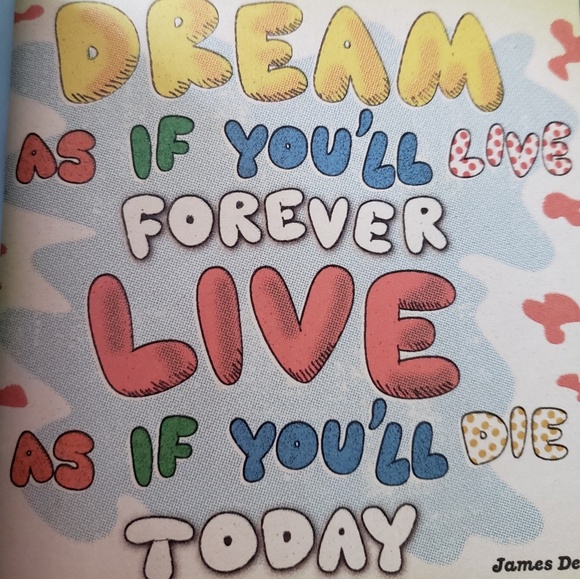 DREAM
AS IF YOU'LL LIVE
FOREVER
LIVE
AS IF YOU'LL DIE
TODAY
James De